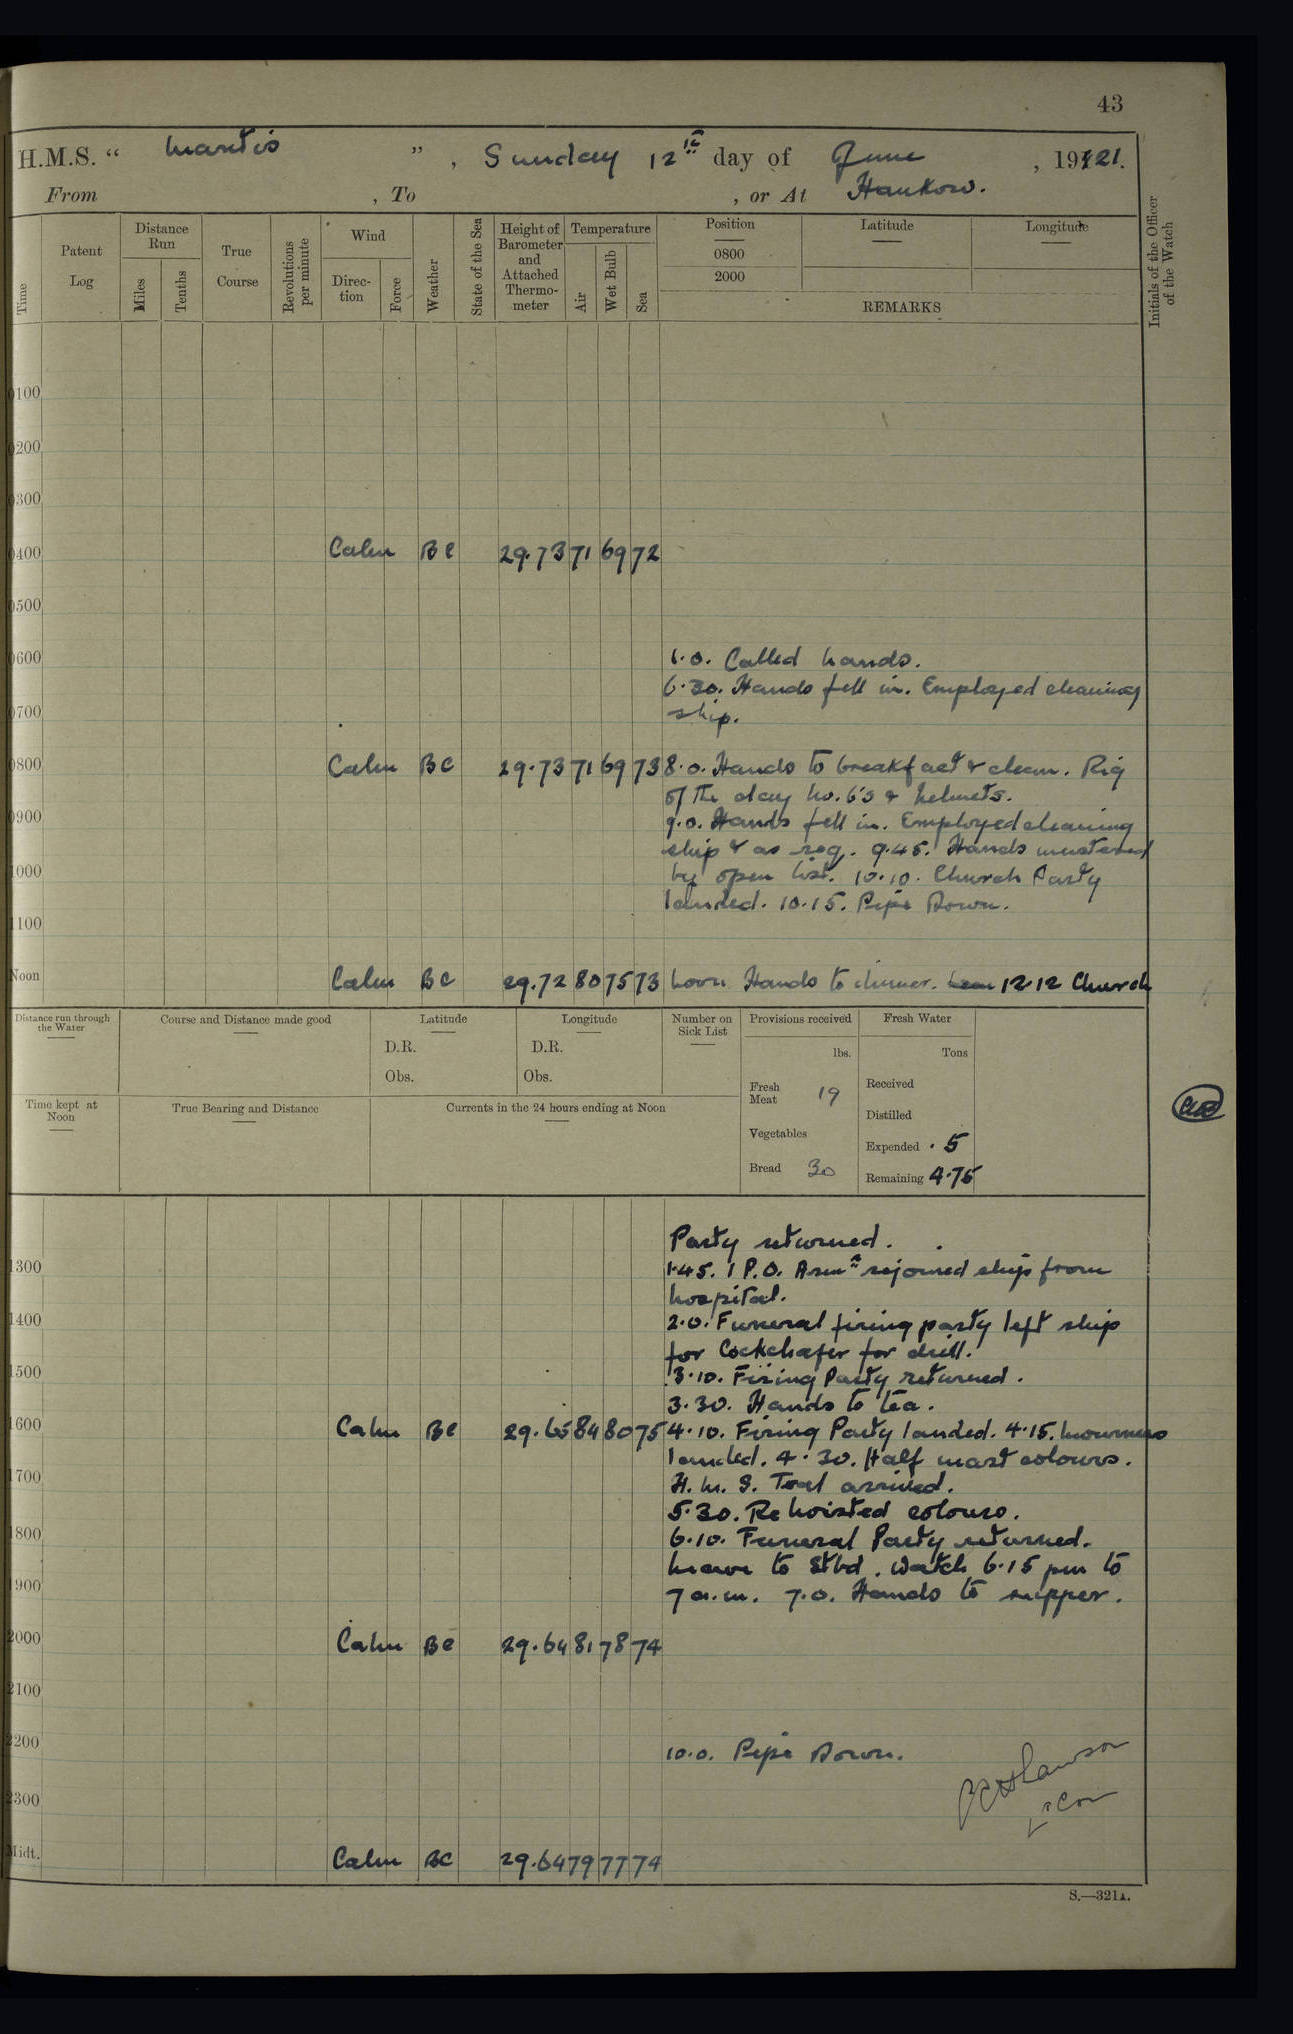 43
H.M.S. “ Mantis ” , Sunday 12th day of June , 1921.
From , To , or At Hankow.
Time
Patent Log
Distance Run
Miles
Tenths
True Course
Revolutions per minute
Wind
Direc-tion
Force
Weather
State of the Sea
Height of Barometer and Attached Thermo-meter
Temperature
Air
Wet Bulb
Sea
Position
0800
2000
Latitude
Longitude
REMARKS
Initials of the Officer of the Watch
0100
0200
0300
0400 Calm BC 29.73 71 69 72
0500
0600 6.0. Called hands.
6.30. Hands fell in. Employed cleaning
0700 ship.
0800 Calm BC 29.73 71 69 73 8.0. Hands to breakfast & clean. Rig
of the day No. 6's & helmets.
0900 9.0. Hands fell in. Employed cleaning
ship & as req. 9.45. Hands mustered
1000 by open list. 10.10. Church Party
landed. 10.15. Pipe Down.
1100
Noon Calm BC 29.72 80 75 73 Noon Hands to dinner. 12.12 Church
Distance run through the Water
Course and Distance made good
Latitude
D.R.
Obs.
Longitude
D.R.
Obs.
Number on Sick List
Provisions received
lbs.
Fresh Meat 19
Vegetables
Bread 30
Fresh Water
Tons
Received
Distilled
Expended .5
Remaining 4.75
Time kept at Noon
True Bearing and Distance
Currents in the 24 hours ending at Noon
Party returned.
1300 1.45. 1 P.O. Armr rejoined ship from
hospital.
1400 2.0. Funeral firing party left ship
for Cockchafer for drill.
1500 3.10. Firing Party returned.
3.30. Hands to tea.
1600 Calm BC 29.65 84 80 75 4.10. Firing Party landed. 4.15. Mourners
landed. 4.30. Half mast colours.
1700 H.M.S. Teal arrived.
5.30. Re hoisted colours.
1800 6.10. Funeral Party returned.
Leave to Stbd. Watch 6.15 pm to
1900 7 a.m. 7.0. Hands to supper.
2000 Calm BC 29.64 81 78 74
2100
2200 10.0. Pipe Down.
2300
Midt. Calm BC 29.64 79 77 74
S.—321A.